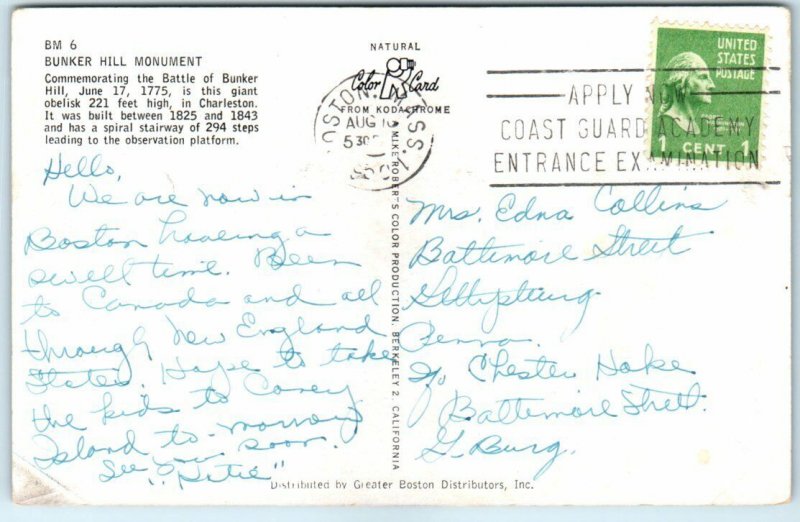 BM 6
BUNKER HILL MONUMENT
Commemorating the Battle of Bunker
Hill, June 17, 1775, is this giant
obelisk 221 feet high, in Charleston.
It was built between 1825 and 1843
and has a spiral stairway of 294 steps
leading to the observation platform.
Hello,
We are now in
Boston haveing a
swell time. Been
to Canada and all
through New England
States. Hope to take
the kids to Coney
Island to-morrow
See you soon.
NATURAL
Color Card
FROM KODACHROME
A MIKE ROBERTS COLOR PRODUCTION, BERKELEY 2, CALIFORNIA
BOSTON, MASS.
AUG
5 30
APPLY NOW
COAST GUARD ACADEMY
ENTRANCE EXAMINATION
UNITED
STATES
POSTAGE
1 CENT 1
Mrs. Edna Collins
Baltimore Street
Gettysburg
Penna.
% Chester Hake
Baltimore Street.
G. Burg.
Distributed by Greater Boston Distributors, Inc.